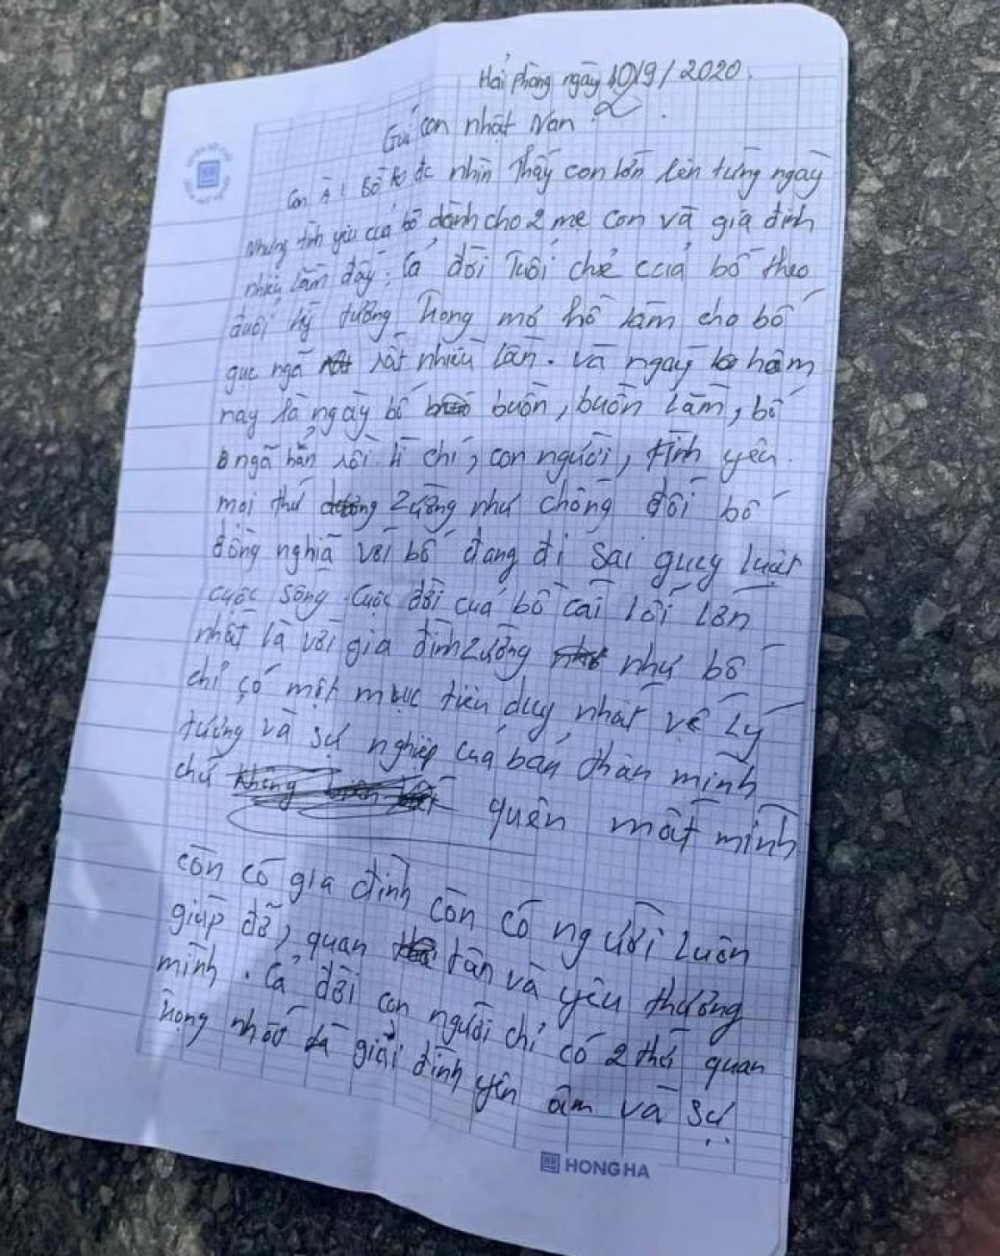 Hải phòng ngày 10/9/2020.
Gửi con nhật Nam
Con À! Bố k đc nhìn Thấy con lớn lên từng ngày
Nhưng tình yêu của bố dành cho 2 mẹ con và gia đình
nhiều lắm đấy. Cả đời Tuổi chẻ của bố theo
đuổi lý tưởng Trong mơ hồ làm cho bố
gục ngã rất nhiều lần. và ngay hôm
nay là ngày bố buồn, buồn lắm, bố
ngã hẳn rồi lí chí, con người, tình yêu.
mọi thứ zường như chống đối bố
đồng nghĩa với bố đang đi sai quy luật
cuộc sống. Cuộc đời của bố cái lỗi lớn
nhất là với gia đình zường như bố
chỉ có một mục tiêu duy nhất về Lý
tưởng và sự nghiệp của bản thân mình
chứ quên mất mình
còn có gia đình còn có người luôn
giúp đỡ, quan tân và yêu thương
mình. Cả đời con người chỉ có 2 thứ quan
trọng nhất là giải đình yên ấm và sự
HONG HA